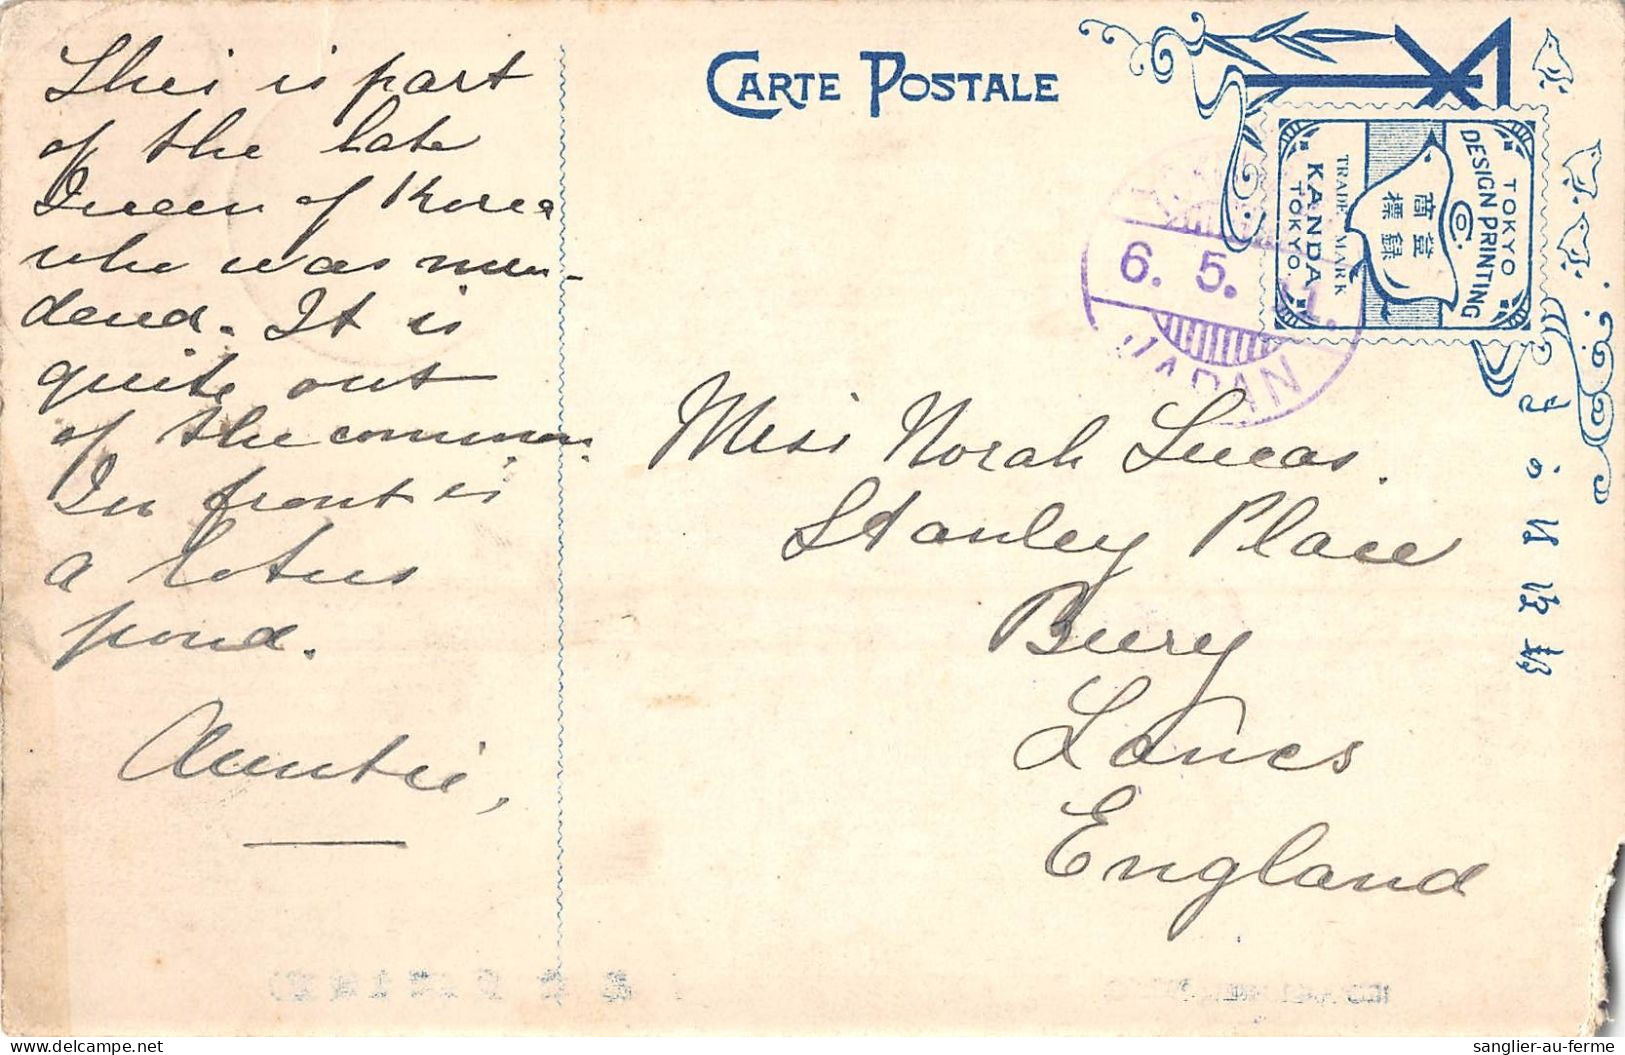 This is part
of the late
Queen of Korea
who was mur-
dered. It is
quite out
of the common.
In front is
a lotus
pond.
Auntie,
CARTE POSTALE
TOKYO
DESIGN PRINTING
Co.
登録
商標
TRADE MARK
KANDA
TOKYO.
6. 5. 11.
JAPAN
Miss Norah Lucas.
Stanley Place
Bury
Lancs
England
delcampe.net
sanglier-au-ferme